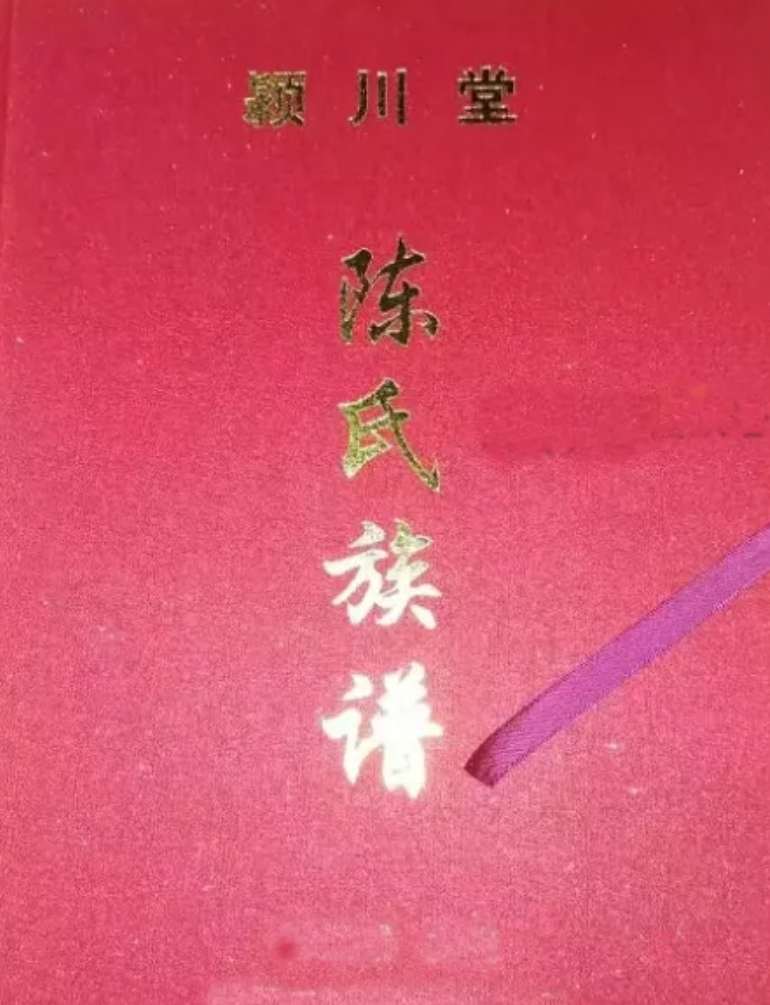 颖川堂
陈氏族谱